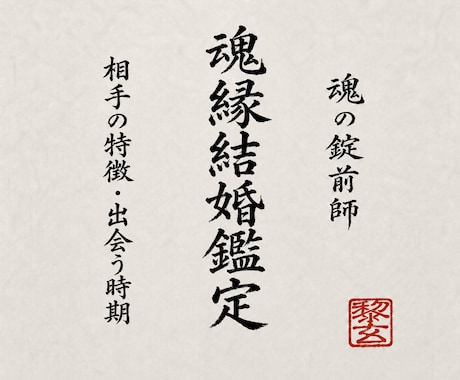 魂の錠前師
魂縁結婚鑑定
相手の特徴・出会う時期
黎玄